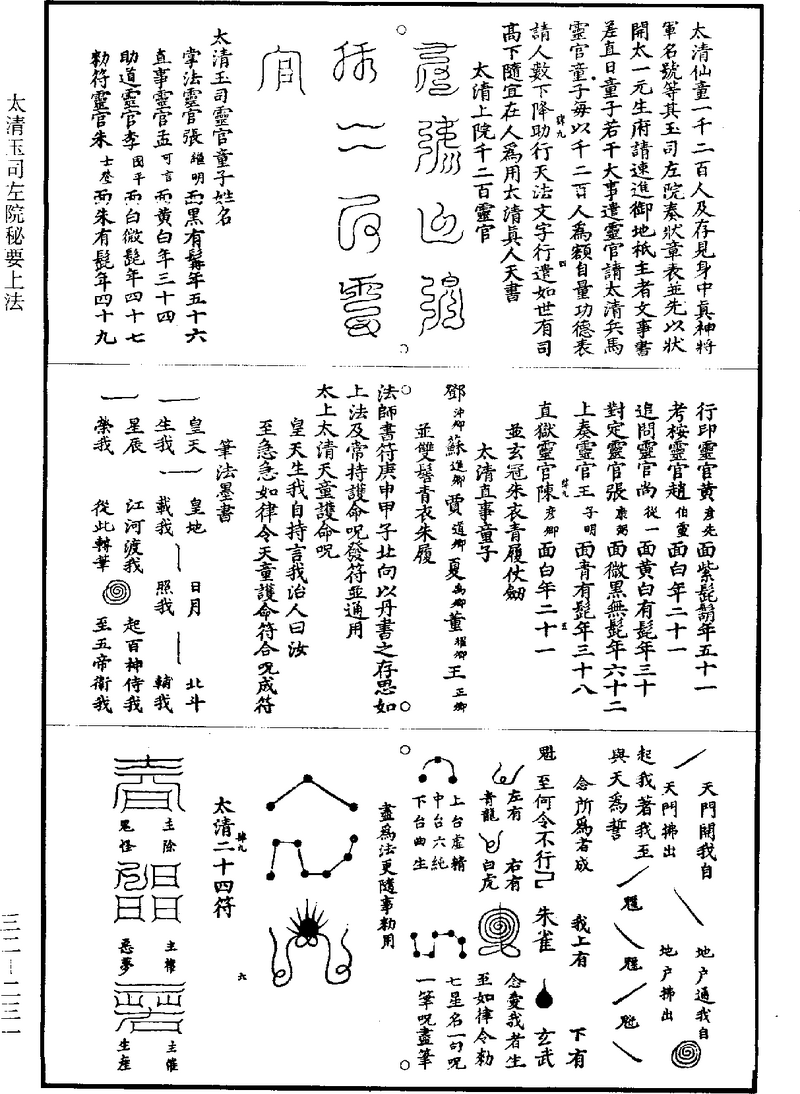 太清仙童一千二百人及存見身中真神將
軍名號等其玉司左院奏狀章表並先以狀
開太一元生府請速進御地祇主者文事書
差直日童子若干大事遣靈官請太清兵馬
靈官童子每以千二百人為額自量功德表
請人數下降助行天法文字行遣如世有司
高下隨宜在人為用太清真人天書
太清上院千二百靈官
太清玉司靈官童子姓名
掌法靈官張繼明面黑有髯年五十六
直事靈官孟可言面黃白年三十四
助道靈官李國平面白微髭年四十七
勑符靈官朱士登面朱有髭年四十九
行印靈官黃彥先面紫髭鬍年五十一
考桉靈官趙伯重面白年二十一
追問靈官尚從一面黃白有髭年三十
對定靈官張康弼面微黑無髭年六十二
上奏靈官王子明面青有髭年三十八
直獄靈官陳彥卿面白年二十一
並玄冠朱衣青履仗劒
太清直事童子
鄧沖卿蘇進卿賈道卿夏禹卿董耀卿王正卿
並雙髻青衣朱履
法師書符庚申甲子北向以丹書之存思如
上法及常持護命呪發符並通用
太上太清天童護命呪
皇天生我自持言我治人曰汝
至急急如律令天童護命符合呪成符
筆法墨書
皇天　皇地　日月　北斗
生我　載我　照我　輔我
星辰　江河渡我　起百神侍我
榮我　從此轉筆　至五帝衛我
天門開我自　地户通我自
天門拂出　地户拂出
起我著我至　魁　魁　魁
與天為誓
念所為者成　我上有　下有
魁　至何令不行　朱雀　玄武
左有　右有　念愛我者生
青龍　白虎　至如律令勑
上台虛精　七星名一句呪
中台六純　一筆呪盡筆
下台曲生
盡為法更隨事勑用
太清二十四符
主除　主權　主催
鬼怪　惡夢　生產
太清玉司左院秘要上法
三二—二三一